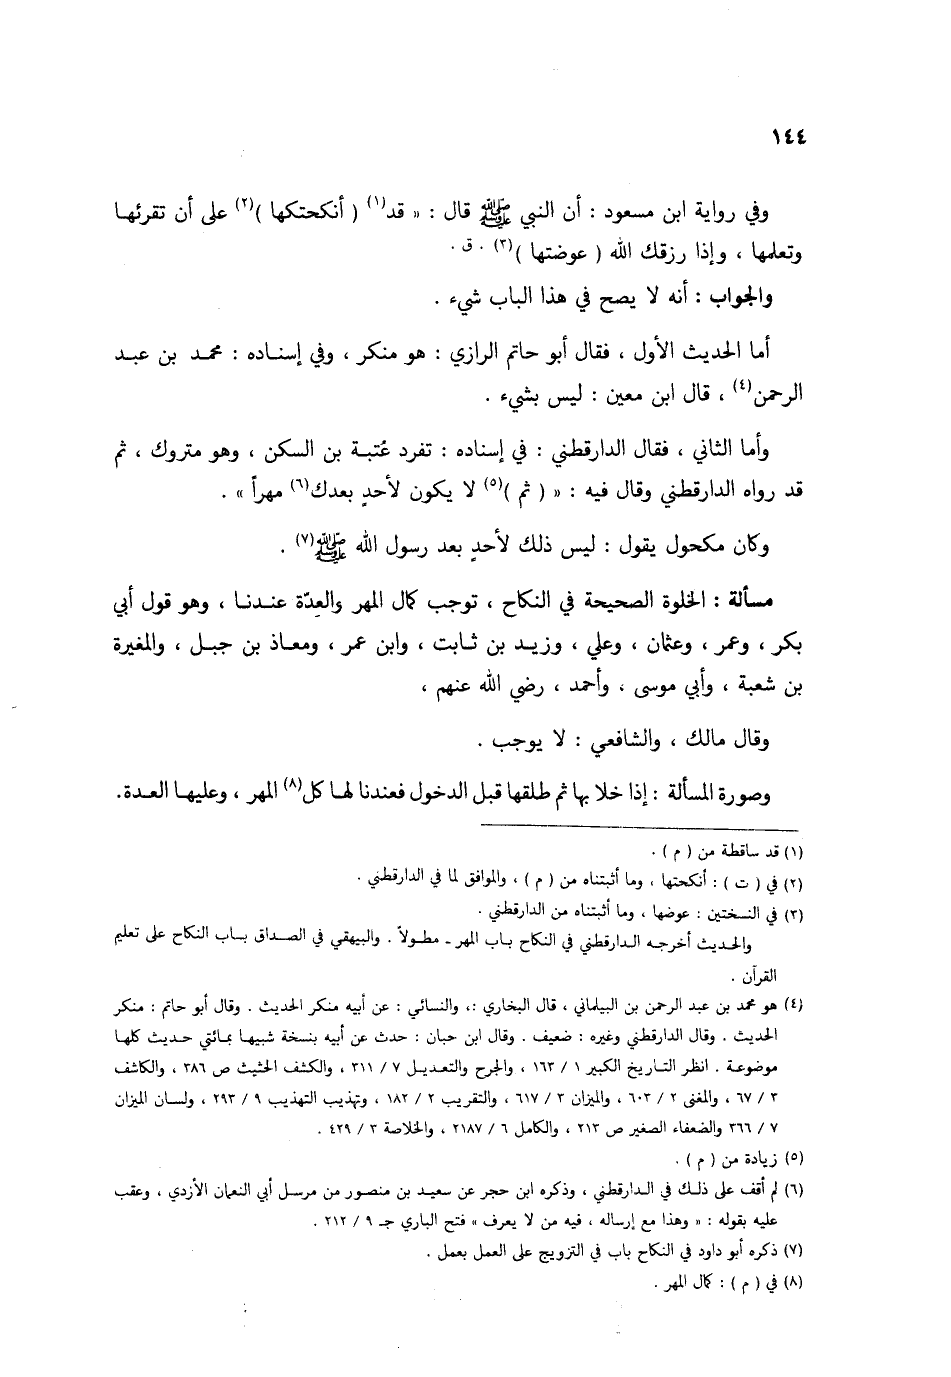 ١٤٤
وفي رواية ابن مسعود : أن النبي ﷺ قال : « قد(١) ( أنكحتكها )(٢) على أن تقرئها
وتعلمها ، وإذا رزقك الله ( عوضتها )(٣) . ق .
والجواب : أنه لا يصح في هذا الباب شيء .
أما الحديث الأول ، فقال أبو حاتم الرازي : هو منكر ، وفي إسناده : محمد بن عبد
الرحمن(٤) ، قال ابن معين : ليس بشيء .
وأما الثاني ، فقال الدارقطني : في إسناده : تفرد عُتبة بن السكن ، وهو متروك ، ثم
قد رواه الدارقطني وقال فيه : « ( ثم )(٥) لا يكون لأحدٍ بعدك(٦) مهراً » .
وكان مكحول يقول : ليس ذلك لأحدٍ بعد رسول الله ﷺ(٧) .
مسألة : الخلوة الصحيحة في النكاح ، توجب كمال المهر والعِدّة عندنا ، وهو قول أبي
بكر ، وعمر ، وعثمان ، وعلي ، وزيد بن ثابت ، وابن عمر ، ومعاذ بن جبل ، والمغيرة
بن شعبة ، وأبي موسى ، وأحمد ، رضي الله عنهم ،
وقال مالك ، والشافعي : لا يوجب .
وصورة المسألة : إذا خلا بها ثم طلقها قبل الدخول فعندنا لها كل(٨) المهر ، وعليها العدة.
(١) قد ساقطة من ( م ) .
(٢) في ( ت ) : أنكحتها ، وما أثبتناه من ( م ) ، والموافق لما في الدارقطني .
(٣) في النسختين : عوضها ، وما أثبتناه من الدارقطني .
والحديث أخرجه الدارقطني في النكاح باب المهر ـ مطولاً . والبيهقي في الصداق باب النكاح على تعليم
القرآن .
(٤) هو محمد بن عبد الرحمن بن البيلماني ، قال البخاري :، والنسائي : عن أبيه منكر الحديث . وقال أبو حاتم : منكر
الحديث . وقال الدارقطني وغيره : ضعيف . وقال ابن حبان : حدث عن أبيه بنسخة شبيها بمائتي حديث كلها
موضوعة . انظر التاريخ الكبير ١ / ١٦٣ ، والجرح والتعديل ٧ / ٣١١ ، والكشف الحثيث ص ٣٨٦ ، والكاشف
٣ / ٦٧ ، والمغنى ٢ / ٦٠٣ ، والميزان ٣ / ٦١٧ ، والتقريب ٢ / ١٨٢ ، وتهذيب التهذيب ٩ / ٢٩٣ ، ولسان الميزان
٧ / ٣٦٦ والضعفاء الصغير ص ٢١٣ ، والكامل ٦ / ٢١٨٧ ، والخلاصة ٣ / ٤٢٩ .
(٥) زيادة من ( م ) .
(٦) لم أقف على ذلك في الدارقطني ، وذكره ابن حجر عن سعيد بن منصور من مرسل أبي النعمان الأزدي ، وعقب
عليه بقوله : « وهذا مع إرساله ، فيه من لا يعرف » فتح الباري جـ ٩ / ٢١٢ .
(٧) ذكره أبو داود في النكاح باب في التزويج على العمل بعمل .
(٨) في ( م ) : كمال المهر .